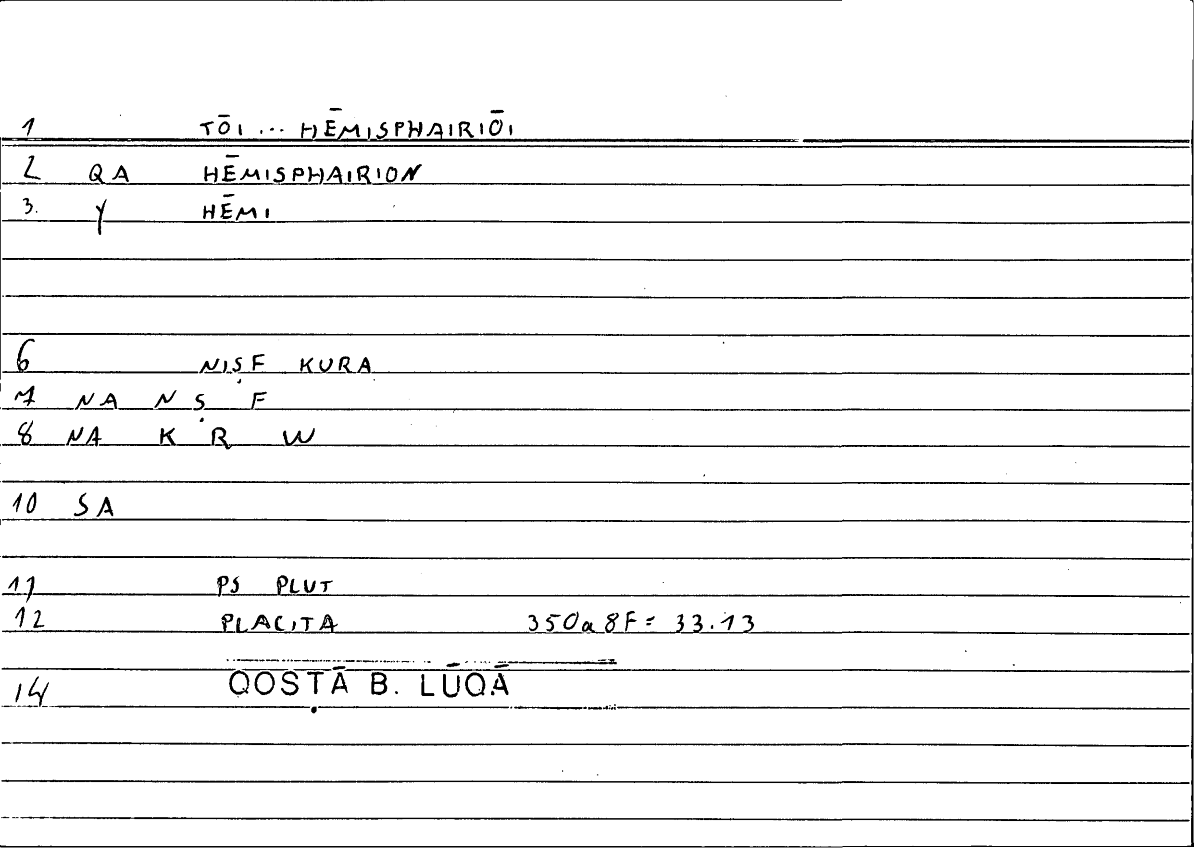 1 TŌI ... HĒMISPHAIRIŌI
2 QA HĒMISPHAIRION
3. Y HĒMI
6 NIṢF KURA
7 NA N Ṣ F
8 NA K R W
10 SA
11 PS PLUT
12 PLACITA 350a8F = 33.13
14 QOSṬĀ B. LŪQĀ